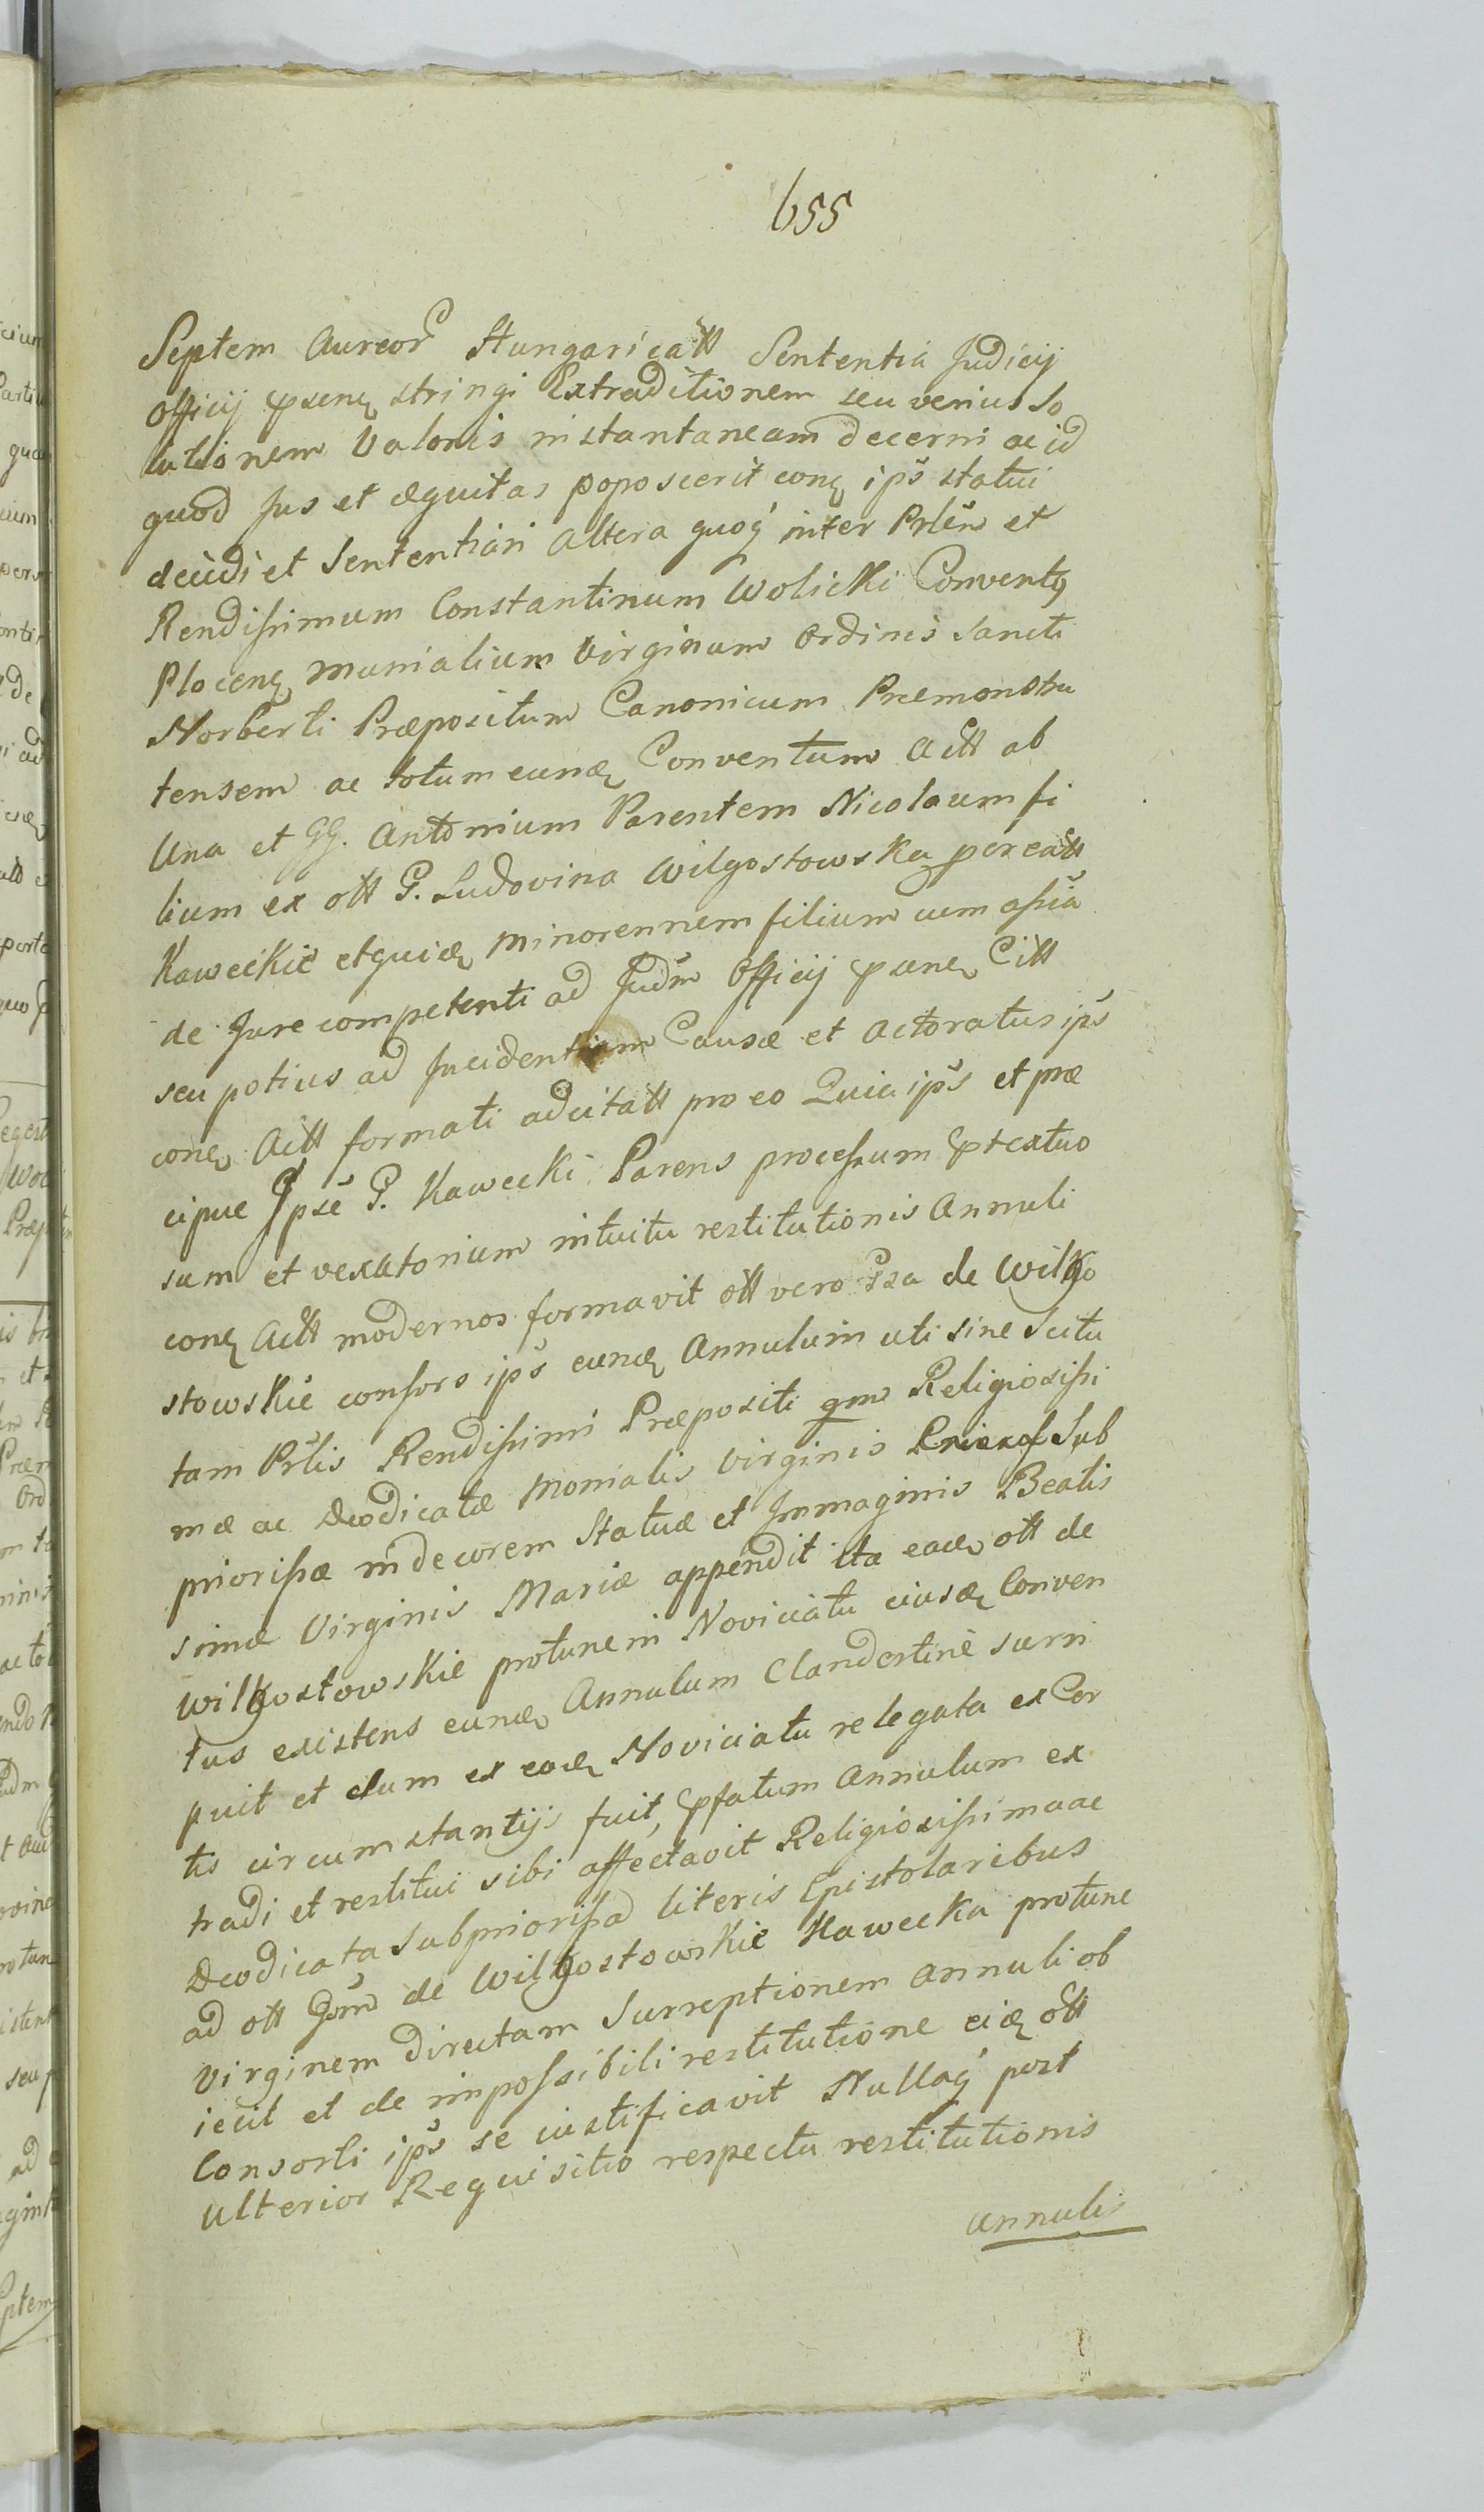 655
Septem Aureor Hungaricatt Sententia Judicij
Officij pseneꝫ stringi Extraditionem seu verius so
lutionem Valoris instantaneam decerni ac id
quod Jus et æquitas poposcerit coneꝫ ips̃ statui
decidi et Sententiari Altera quoq́ inter Prlẽm et
Rendißimum Constantinum Wolicki Conventꝰ
Ploceneꝫ Monialium Virginum Ordinis Sancti
Norberti Præpositum Canonicum Præmonstra
tensem ac totum eundꝫ Conventum Actt ab
Una et GG. Antonium Parentem Nicolaum fi
lium ex ott G. Ludovina Wilgostowska procreatt
Kaweckie et quidꝫ Minorennem filium cum aßia
de Jure competenti ad Judm̃ Officij pseneꝫ Citt
seu potius ad Incidentiam Causæ et Actoratus ips̃
coneꝫ Actt formati adcitatt pro eo Quia ips̃ et præ
cipue Ipse G. Kawecki Parens proceßum prtextuo
sum et vexatorium intuitu restitutionis Annuli
coneꝫ Actt modernos formavit ott vero Gsa de Wilgo
stowskie consors ips̃ eundꝫ Annulum uti sine Scitu
tam Prl̃is Rendißimi Præpositi qm Religiosißi
mæ ac Deodicatæ Monialis Virginis Sub
priorißæ in decorem Statuæ et Immaginis Beatis
simæ Virginis Mariæ appendit ita eadꝫ ott de
Wilgostowskie protunc in Noviciatu eiusdꝫ Conven
tus existens eundꝫ Annulum Clandestine surri
puit et dum ex eodꝫ Noviciatu relegata ex Cer
tis circumstantijs fuit, prfatum Annulum ex
tradi et restitui sibi affectavit Religiosißima ac
Deodicata Subprioriẞa literis Epistolaribus
ad ott Gsm̃ de Wilgostowskie Kawecka protunc
Virginem directam Surreptionem Annuli ob
iecit et de impossibili restitutione eidꝫ ott
Consorti ips̃ se iustificavit Nullaq́ post
ulterior Requisitio respectu restitutionis
Annuli